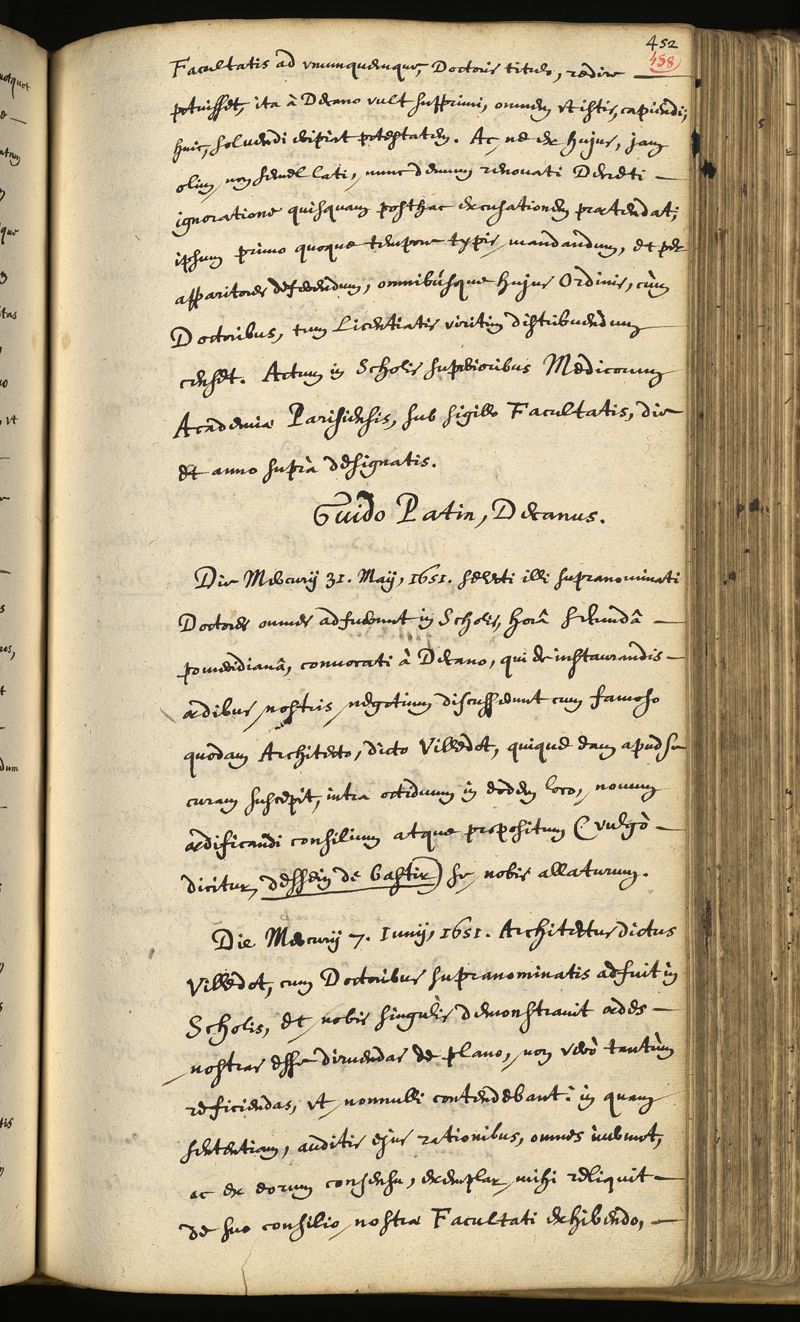 452
458
Facultatis ad vnumquemque, Doctoris titulo, redire
potuisset, ita à Decano vult supprimi, omnem vt istis, capiendi;
huic, solvendi eripiat potestatem. Ac ne ex hujus, jam
olim, non semel lati, nunc demum renovati Decreti
ignoratione quisquam posthac excusationem prætendat;
ipsum primo quoque tempore typis mandandum, et per
apparitores deferendum, omnibúsque hujus Ordinis, cùm
Doctoribus, tum Licentiatis viritim distribuendum
censet. Actum in Scholis superioribus Medicorum
Academiæ Parisiensis, sub sigillo Facultatis, die
et anno suprà designatis.
Guido Patin, Decanus.
Die Mercurij 31. Maij, 1651. selecti illi supranominati
Doctores omnes adfuerunt in Scholis, horâ secundâ
pomeridianâ, convocati à Decano, qui de instaurandis
ædibus nostris negotium discusserunt cum famoso
quodam Architecto, dicto Villedot, quique eam apud se
curam suscepit, intra octiduum in eodem loco, novum
ædificandi consilium atque propositum (vulgò
dicitur, dessein de bastir) se nobis allaturum.
Die Mercurij 7. Iunij, 1651. Architectus dictus
Villedot, cum Doctoribus supranominatis adfuit in
Scholis, et nobis singulis demonstravit ædes
nostras esse diruendas de plano, non verò tantùm
reficiendas, vt nonnulli contendebant: in quam
sententiam, auditis ejus rationibus, omnes iuerunt,
ac ex eorum consensu, exemplar mihi reliquit
de suo consilio nostræ Facultati exhibendo,